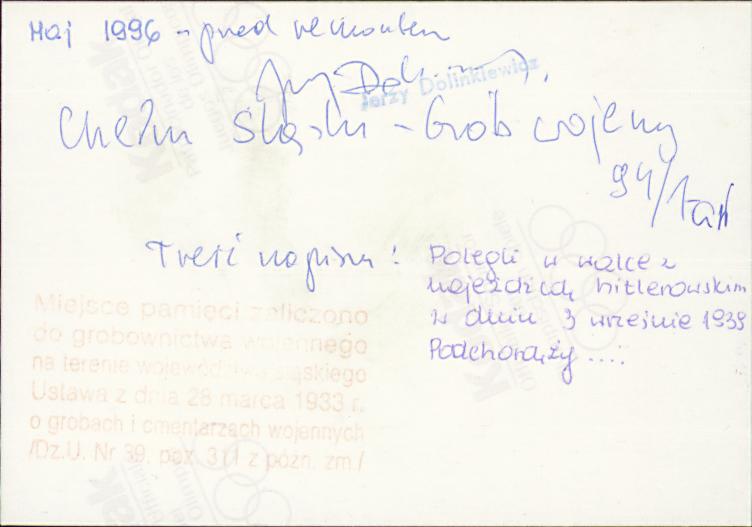 Maj 1996 - przed remontem
Jerzy Dolinkiewicz
Chełm Śląski - Grób wojenny
94/
Treść napisu: Polegli w walce z
najeźdźcą hitlerowskim
w dniu 3 wrześnie 1939
Podchorąży ....
Miejsce pamięci zaliczono
do grobownictwa wojennego
na terenie województwa śląskiego
Ustawa z dnia 28 marca 1933 r.
o grobach i cmentarzach wojennych
/Dz.U. Nr 39, poz. 311 z późn. zm./
Kodak